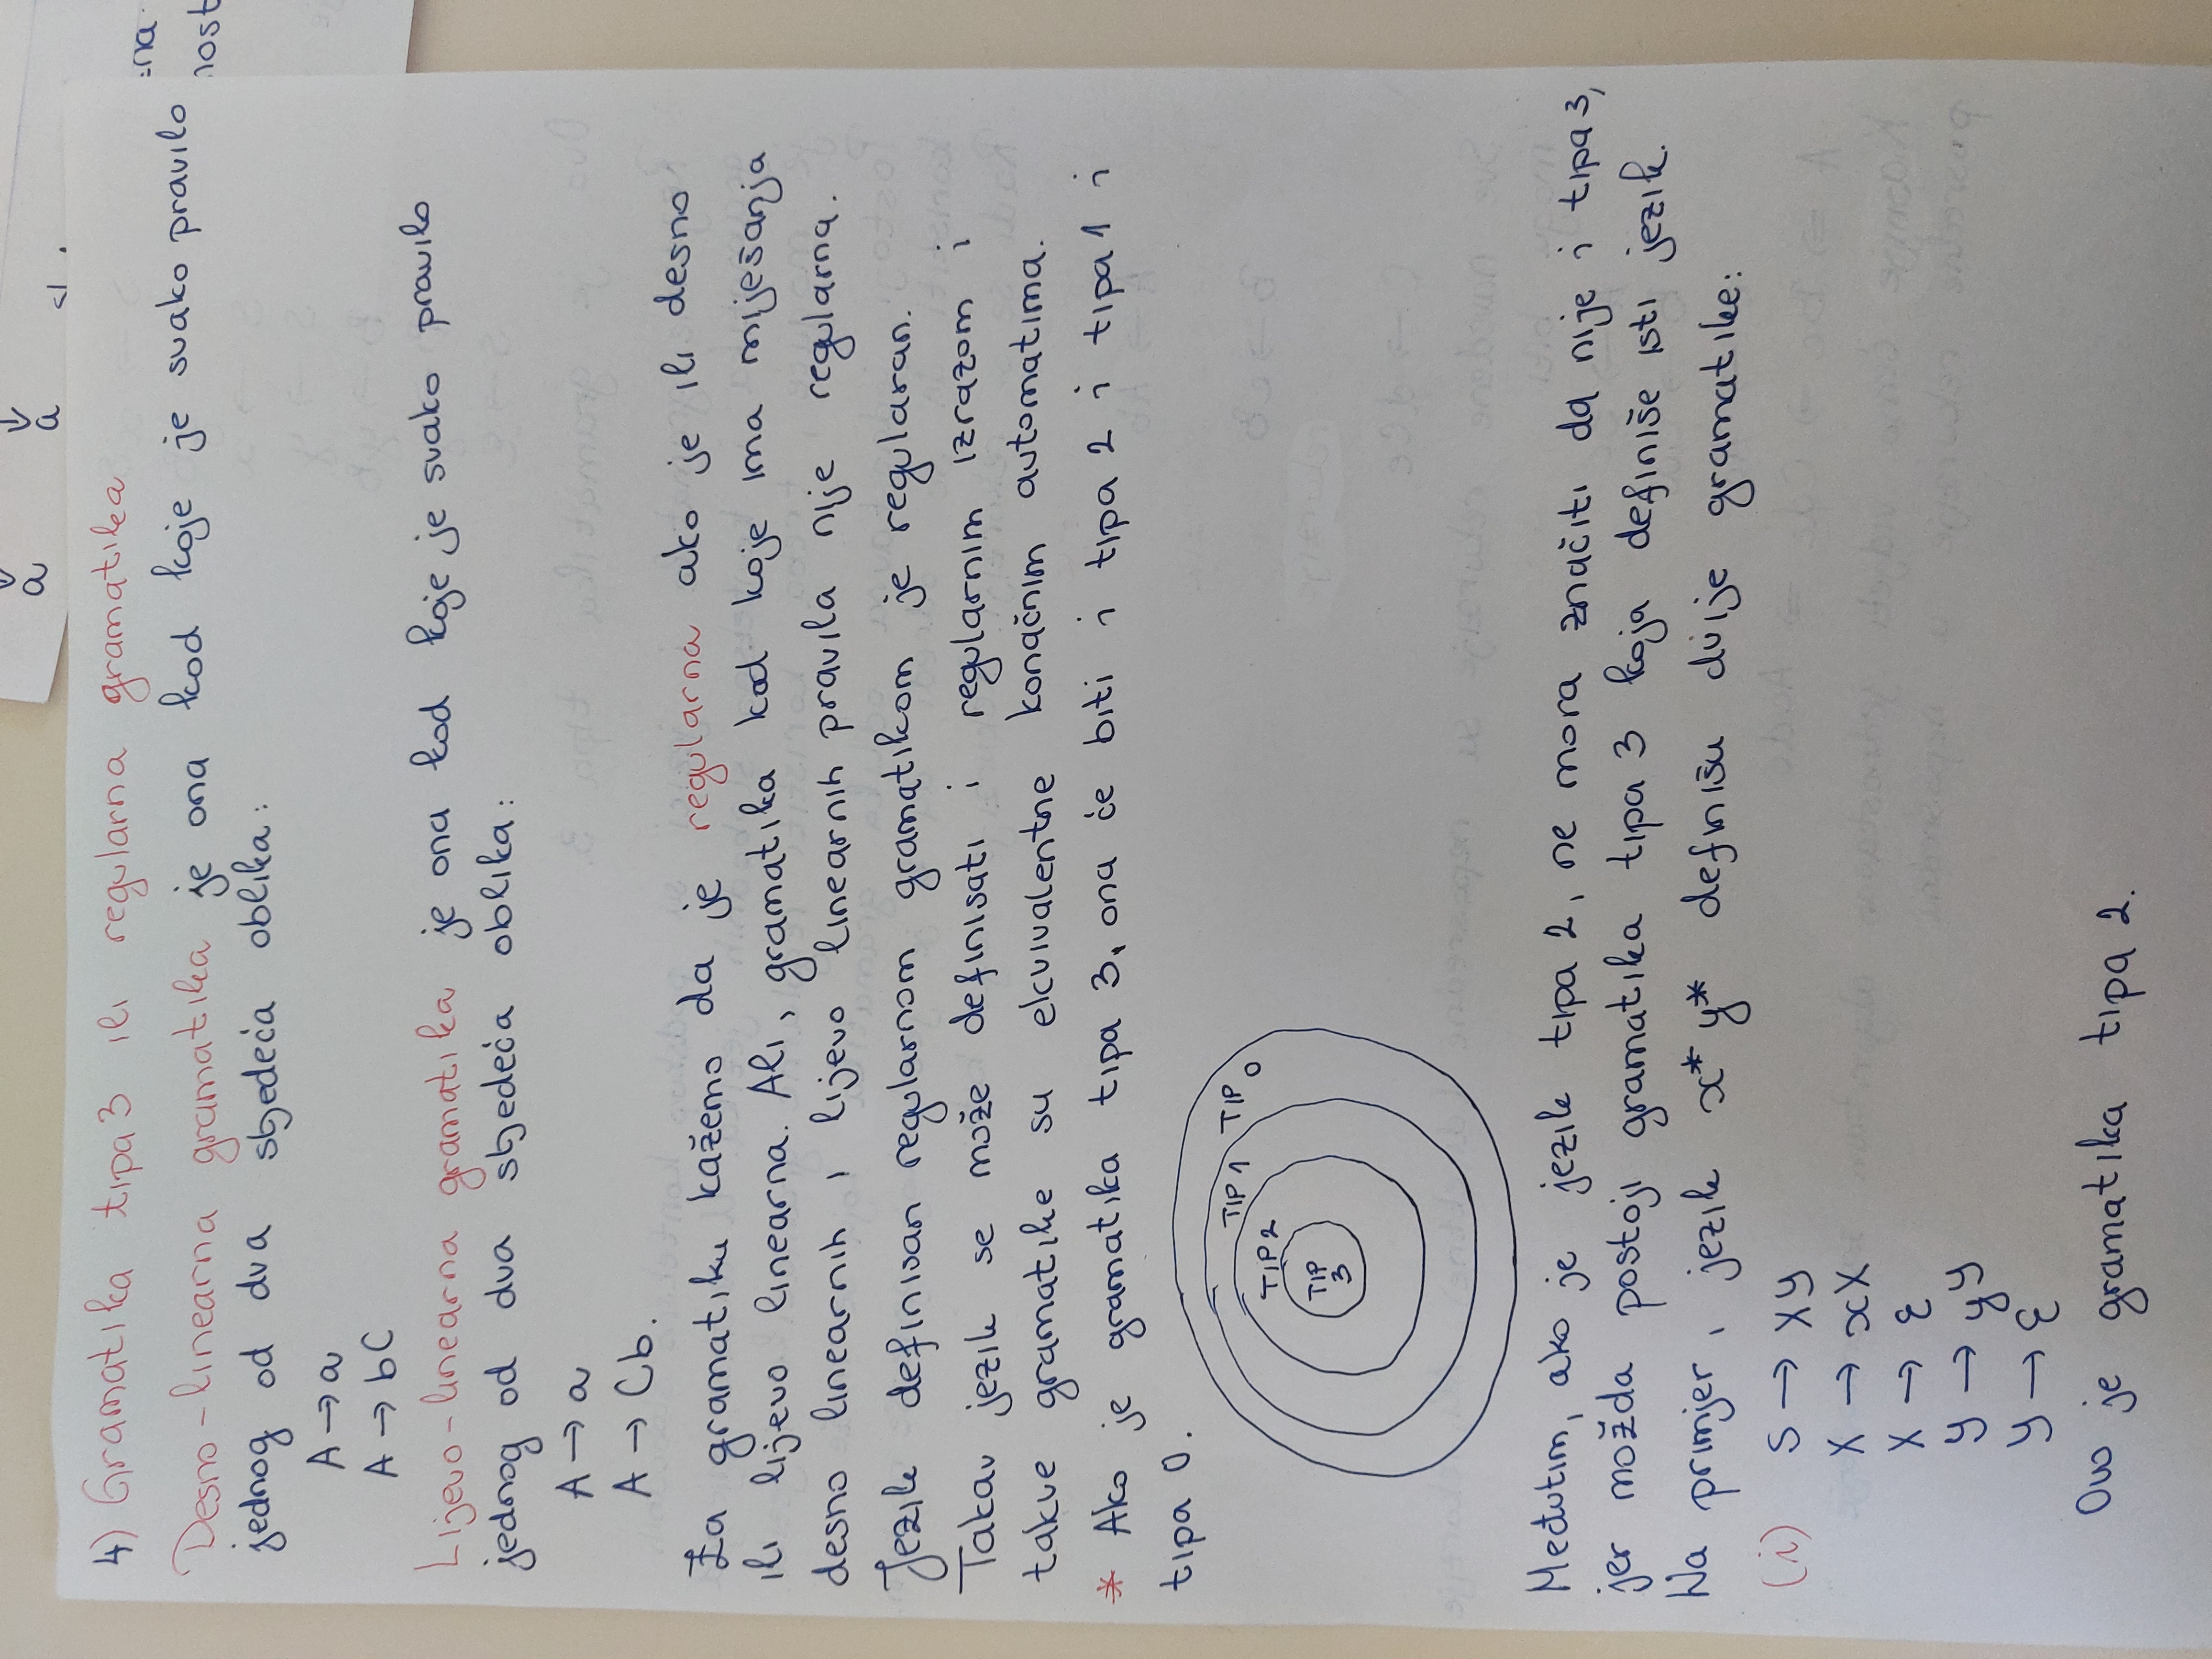 a a
4) Gramatika tipa 3 ili regularna gramatika
Desno-linearna gramatika je ona kod koje je svako pravilo
jednog od dva sljedeća oblika:
A → a
A → bC
Lijevo-linearna gramatika je ona kod koje je svako pravilo
jednog od dva sljedeća oblika:
A → a
A → Cb.
Za gramatiku kažemo da je regularna ako je ili desno
ili lijevo linearna. Ali, gramatika kod koje ima miješanja
desno linearnih i lijevo linearnih pravila nije regularna.
Jezik definisan regularnom gramatikom je regularan.
Takav jezik se može definisati i regularnim izrazom i
takve gramatike su ekvivalentne konačnim automatima.
* Ako je gramatika tipa 3, ona će biti i tipa 2 i tipa 1 i
tipa 0.
TIP 1 TIP 0
TIP 2
TIP
3
Međutim, ako je jezik tipa 2, ne mora značiti da nije i tipa 3,
jer možda postoji gramatika tipa 3 koja definiše isti jezik.
Na primjer, jezik x* y* definišu dvije gramatike:
(i) S → XY
X → xX
X → ε
Y → yY
Y → ε
Ovo je gramatika tipa 2.